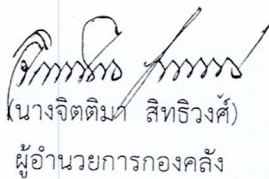 (นางจิตติมา สิทธิวงศ์)
ผู้อำนวยการกองคลัง